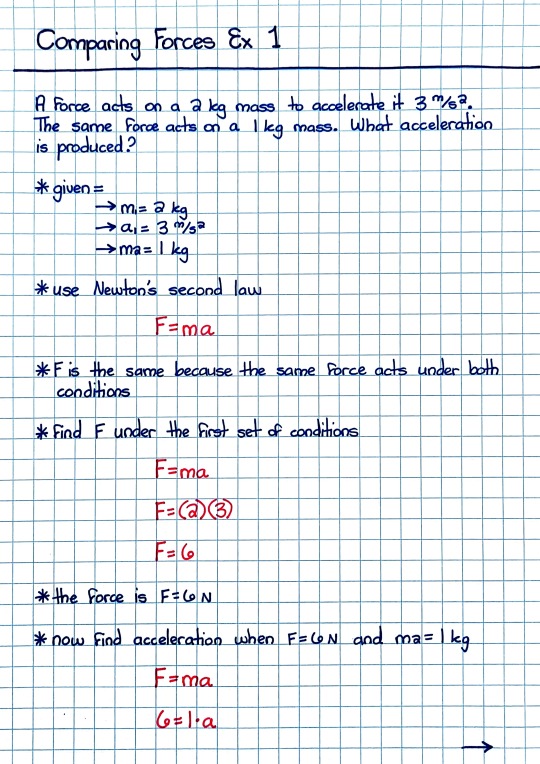 Comparing Forces Ex 1
A force acts on a 2 kg mass to accelerate it 3 m/s².
The same force acts on a 1 kg mass. What acceleration
is produced?
* given =
→ m₁ = 2 kg
→ a₁ = 3 m/s²
→ m₂ = 1 kg
* use Newton's second law
F = ma
* F is the same because the same force acts under both
conditions
* find F under the first set of conditions
F = ma
F = (2)(3)
F = 6
* the force is F = 6 N
* now find acceleration when F = 6 N and m₂ = 1 kg
F = ma
6 = 1·a
→